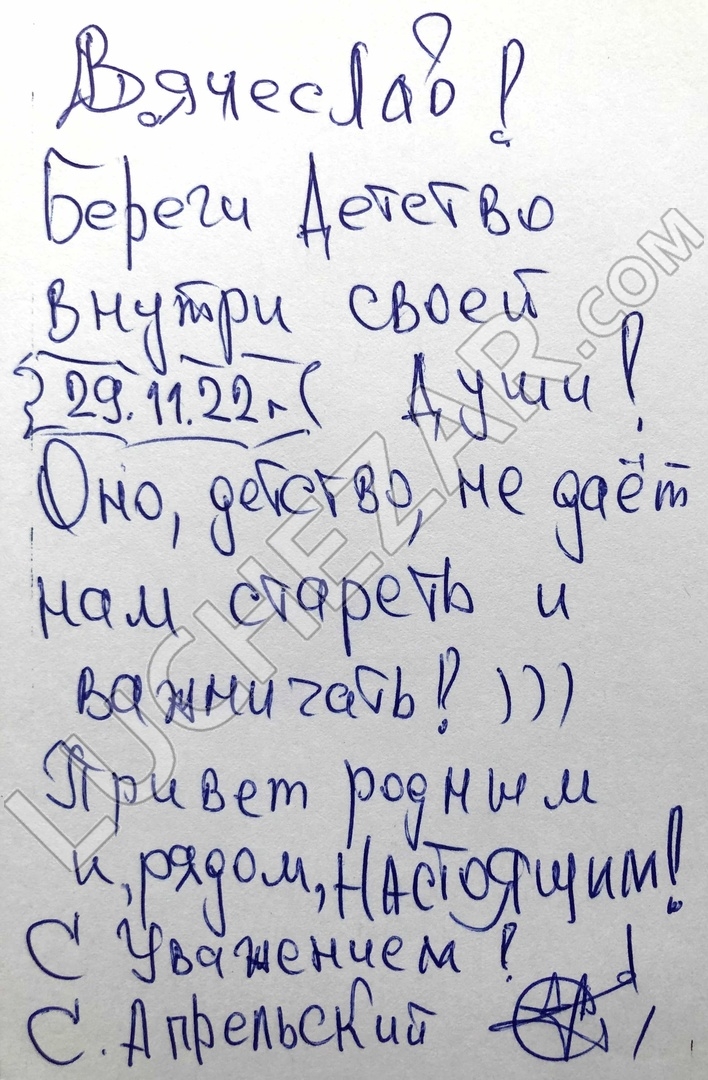 Вячеслав!
Береги Детство
внутри своей
29.11.22г. Души!
Оно, детство, не даёт
нам стареть и
важничать! )))
Привет родным
и, рядом, НАСТОЯЩИМ!
С Уважением!
С. Апрельский
LUCHEZAR.COM